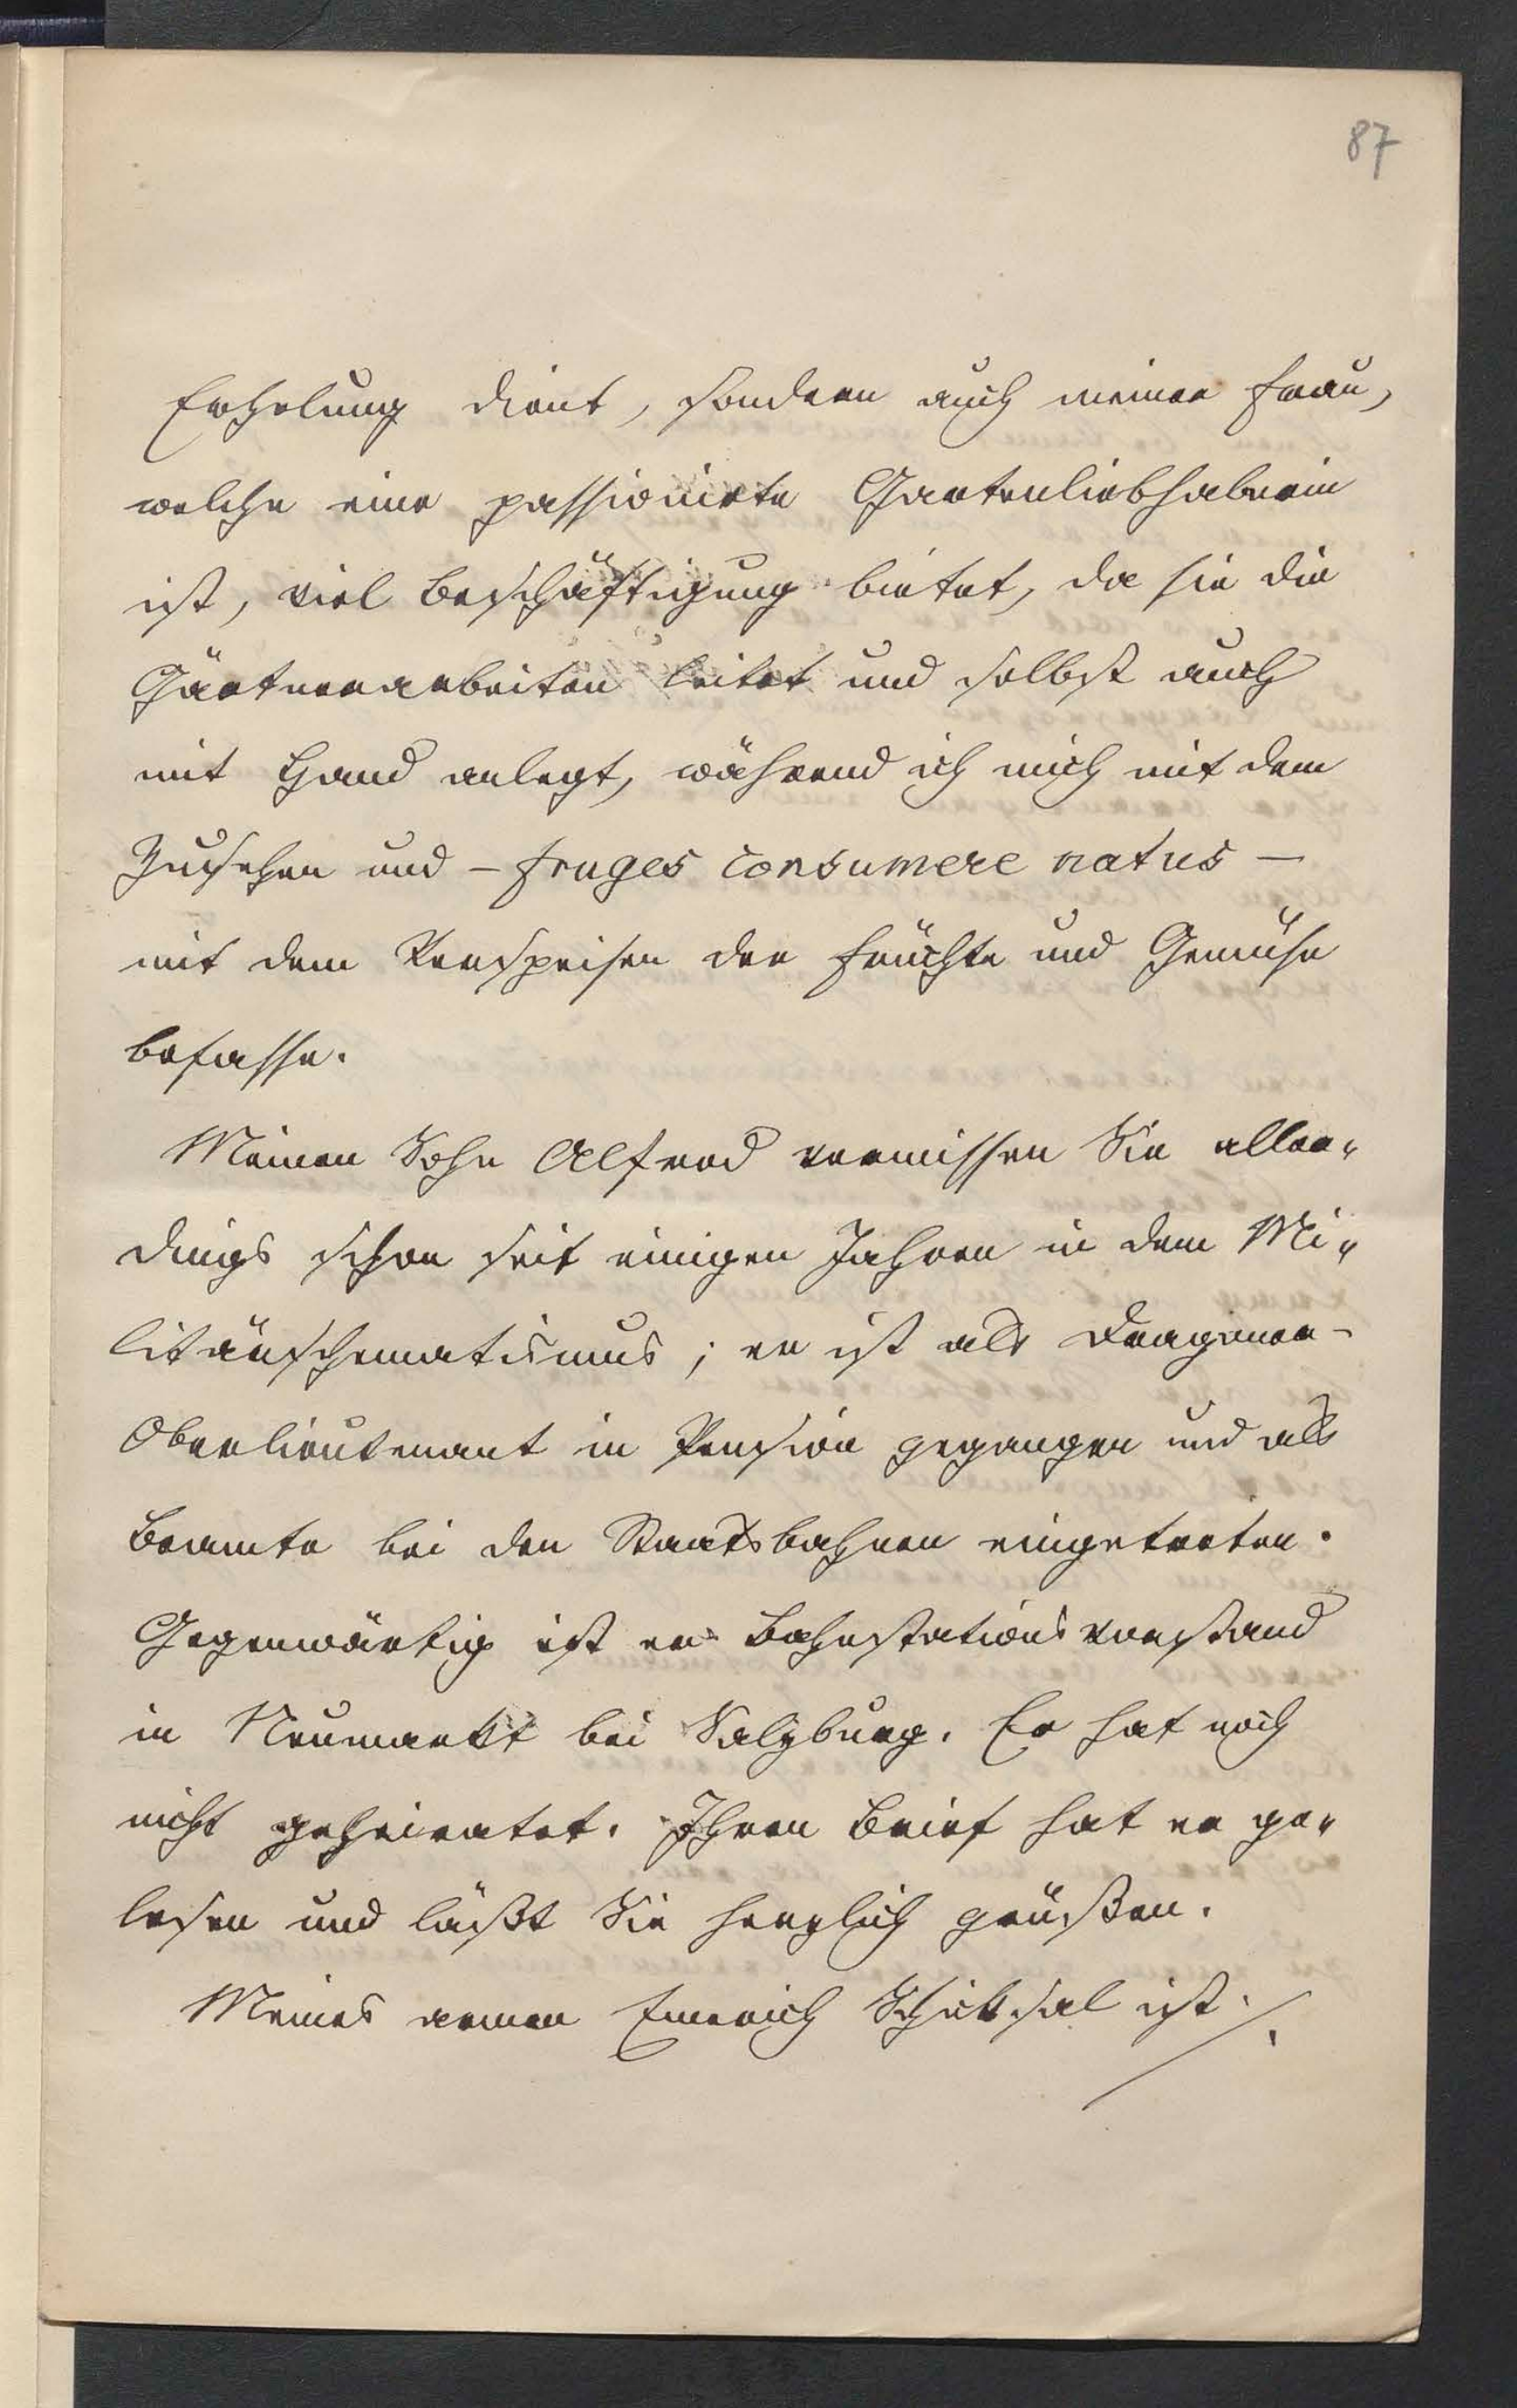 87
Erholung dient, sondern auch meiner Frau,
welche eine passionirte Gartenliebhaberin
ist, viel Beschäftigung bietet, da sie die
Gärtnerarbeiten leitet und selbst auch
mit Hand anlegt, während ich mich mit dem
Zusehen und – fruges consumere natus –
mit dem Verspeisen der Früchte und Gemüse
befasse.
Meinen Sohn Alfred vermissen Sie aller-
dings schon seit einigen Jahren in dem Mi-
litärschematismus; er ist als Dragoner-
Oberlieutenant in Pension gegangen und als
Beamte bei den Staatsbahnen eingetreten.
Gegenwärtig ist er Bahnstationsvorstand
in Neumarkt bei Salzburg. Er hat noch
nicht geheiratet. Ihren Brief hat er ge-
lesen und läßt Sie herzlich grüßen.
Meines armen Emerich Schicksal ist ./.